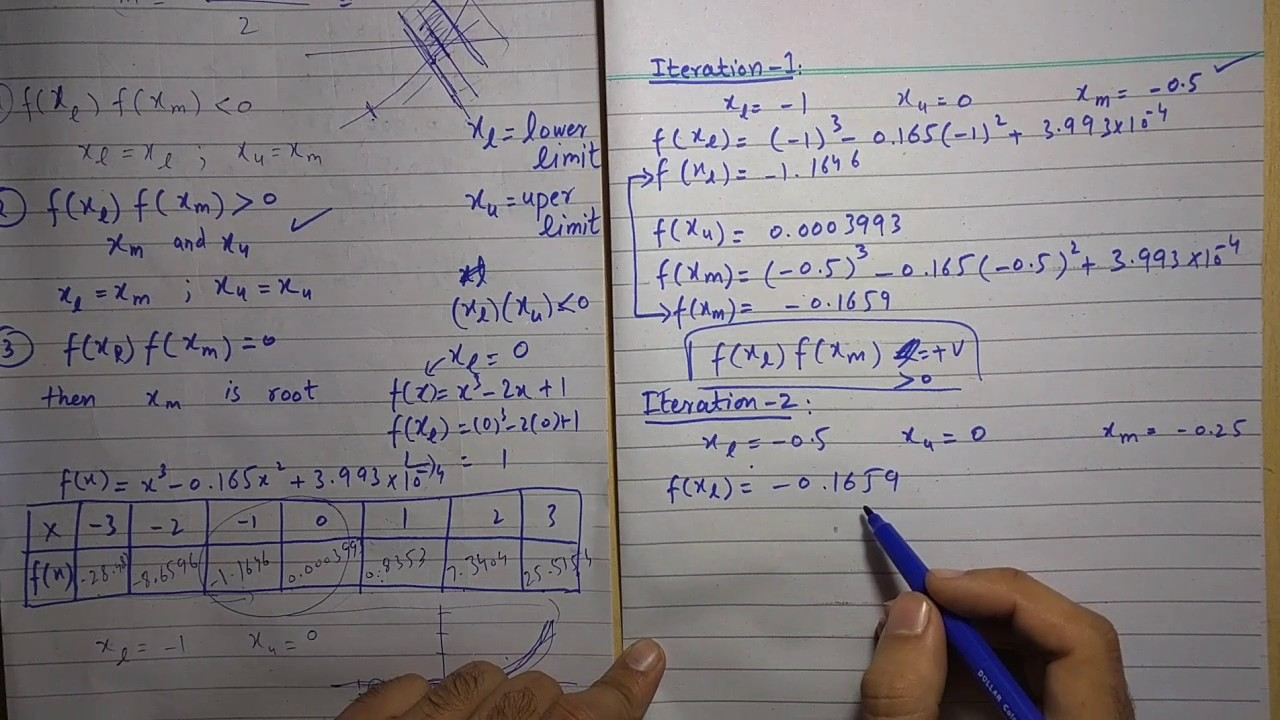 2
1) f(xₗ) f(xₘ) <0
xₗ = xₗ ; xᵤ = xₘ
2) f(xₗ) f(xₘ) > 0
xₘ and xᵤ
xₗ = xₘ ; xᵤ = xᵤ
3) f(xₗ) f(xₘ) = 0
then xₘ is root
xₗ = lower
limit
xᵤ = uper
limit
(xₗ)(xᵤ) <0
xₗ = 0
f(x) = x³ - 2x + 1
f(xₗ) = (0)³ - 2(0) + 1
= 1
f(x) = x³ - 0.165x² + 3.993 × 10⁻⁴
x -3 -2 -1 0 1 2 3
f(x) -8.6596 -1.1646 0.000399 0.8353 7.3404
xₗ = -1 xᵤ = 0
Iteration-1:
xₗ = -1 xᵤ = 0 xₘ = -0.5
f(xₗ) = (-1)³ - 0.165(-1)² + 3.993×10⁻⁴
f(xₗ) = -1.1646
f(xᵤ) = 0.0003993
f(xₘ) = (-0.5)³ - 0.165(-0.5)² + 3.993×10⁻⁴
f(xₘ) = -0.1659
f(xₗ) f(xₘ) = +V
>0
Iteration-2:
xₗ = -0.5 xᵤ = 0 xₘ = -0.25
f(xₗ) = -0.1659
DOLLAR